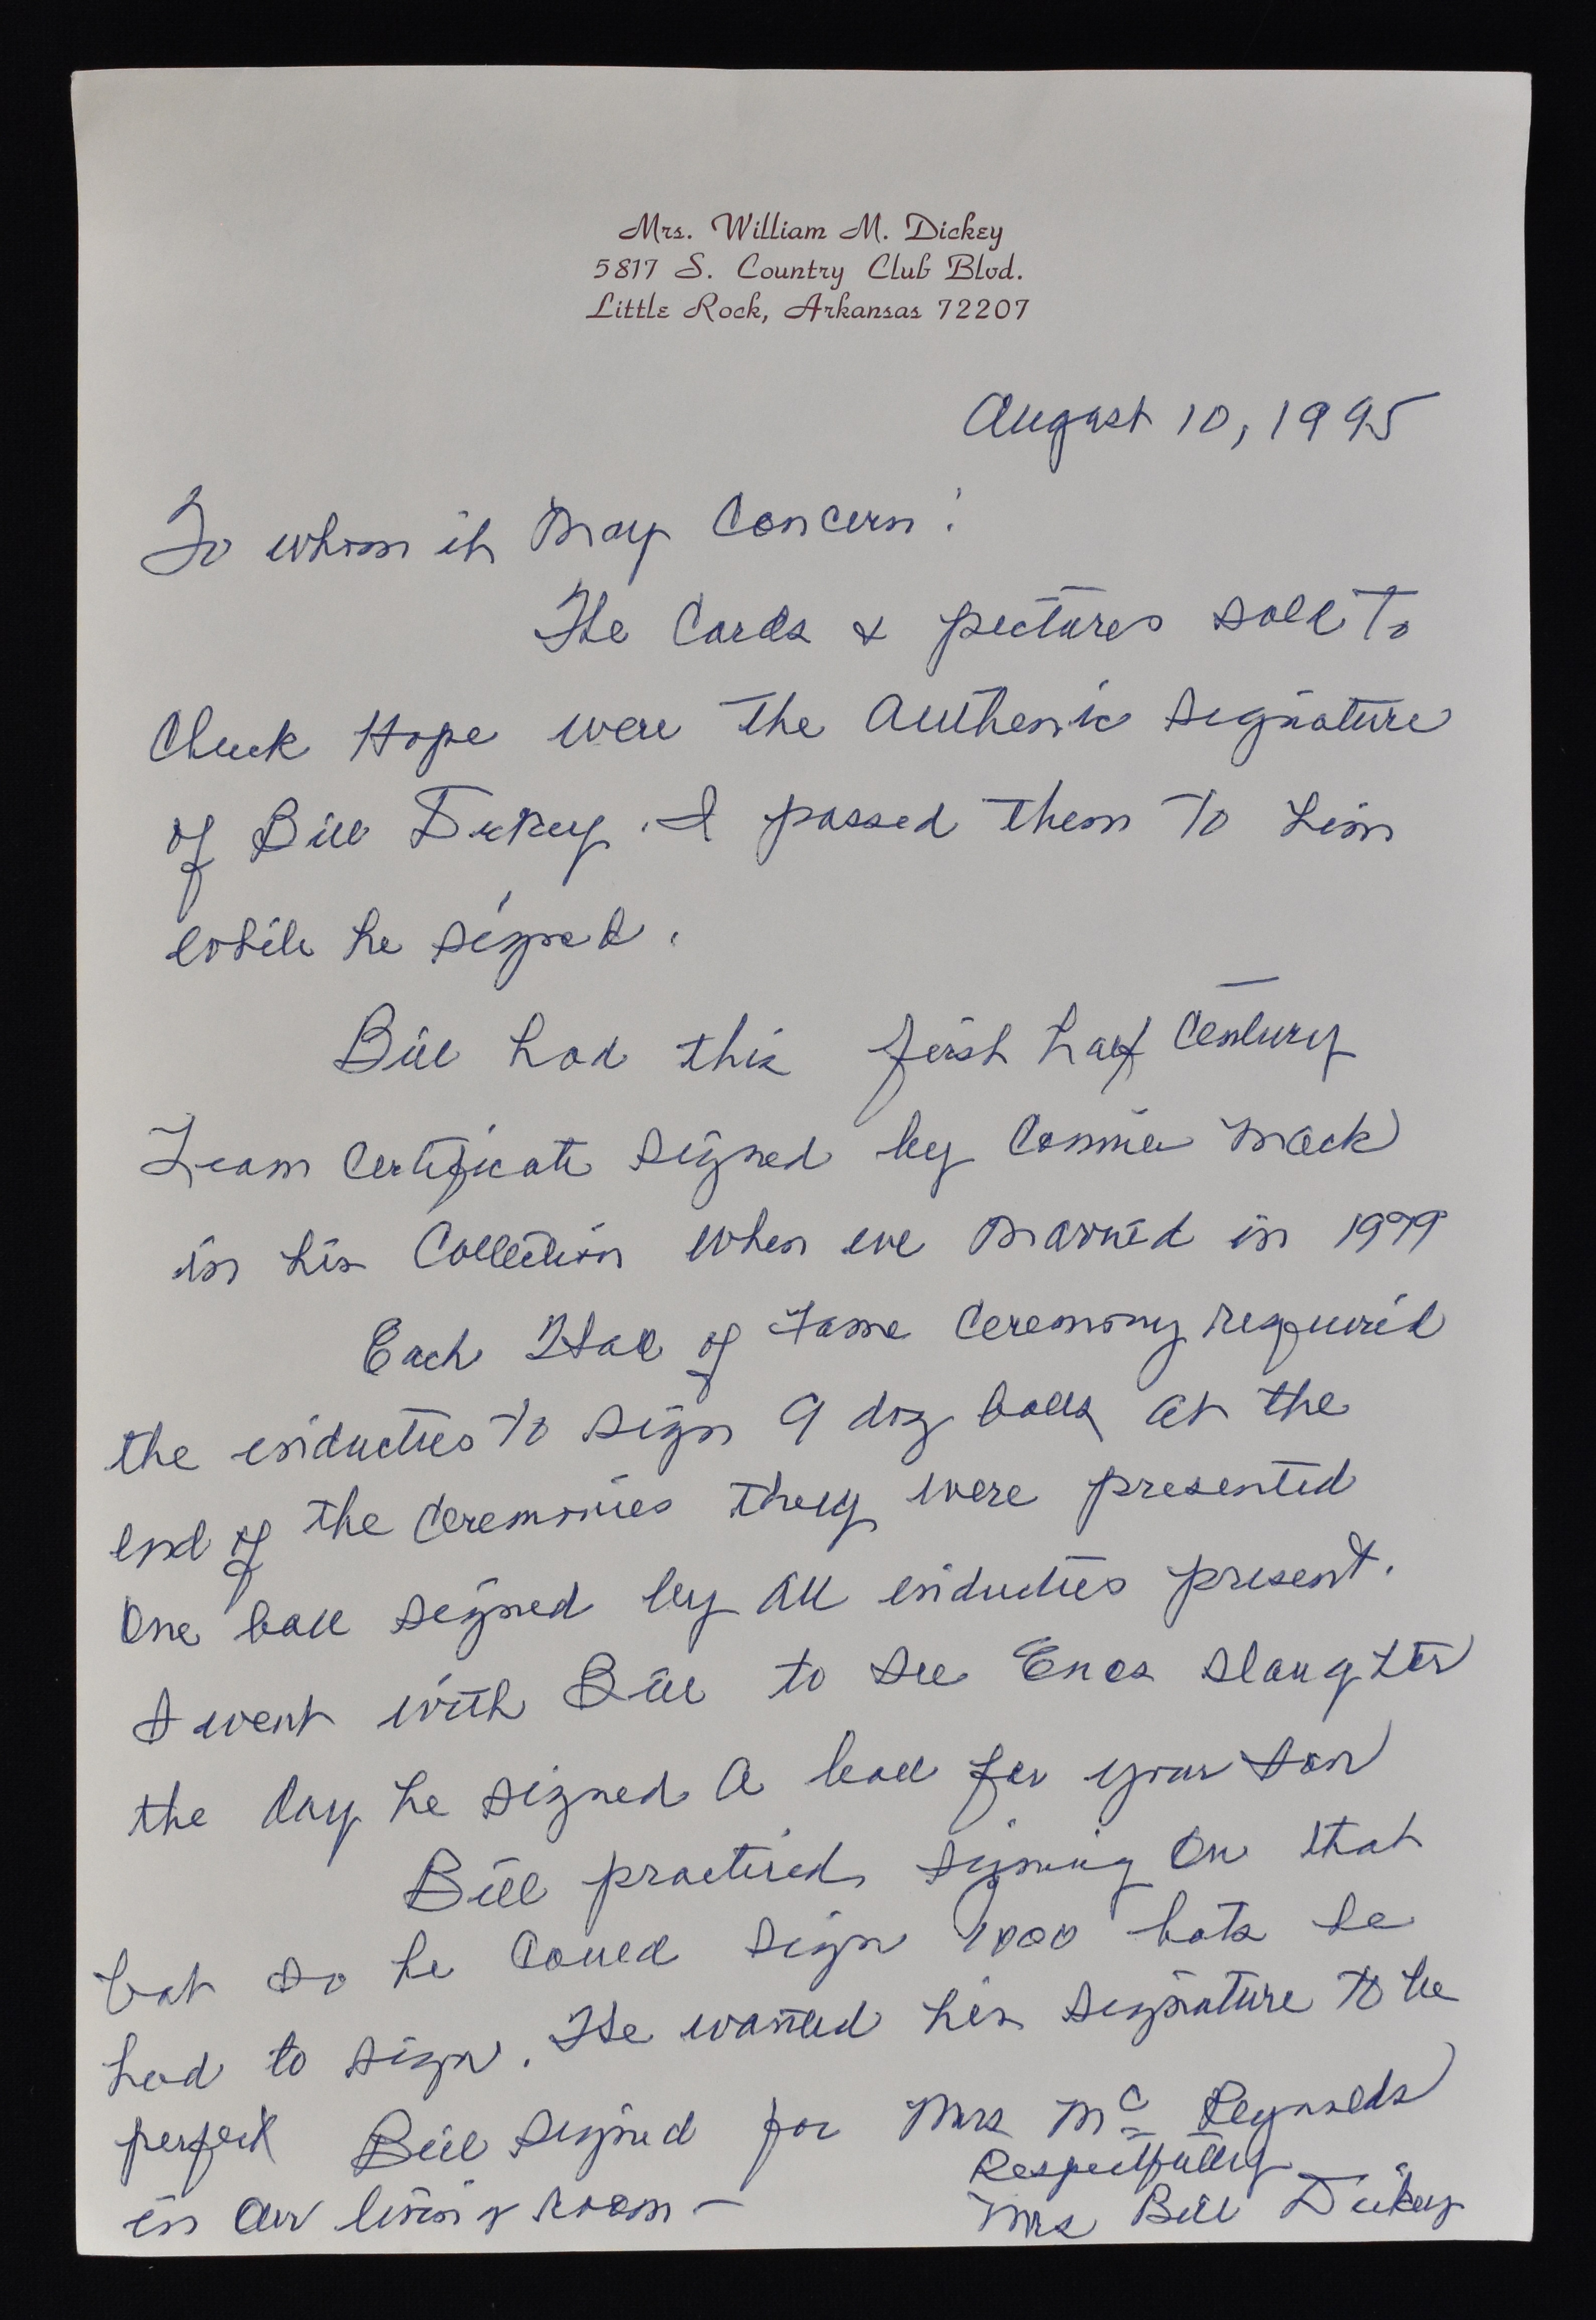 Mrs. William M. Dickey
5817 S. Country Club Blvd.
Little Rock, Arkansas 72207
August 10, 1995
To whom it May Concern:
The Cards & pictures sold To
Chuck Hope were the Authentic Signature
of Bill Dickey. I passed them To him
while he signed.
Bill had this first half Century
Team Certificate signed by Connie Mack
in his Collection when we married in 1979
Each Hall of Fame Ceremony required
the inductees to sign 9 doz balls at the
end of the Ceremonies they were presented
One ball signed by all inductees present.
I went with Bill to see Enos Slaughter
the day he signed a ball for your son
Bill practiced signing on that
bat so he could sign 1000 bats he
had to sign. He wanted his signature to be
perfect Bill signed for Mrs McReynolds
in our living room —
Respectfully
Mrs Bill Dickey